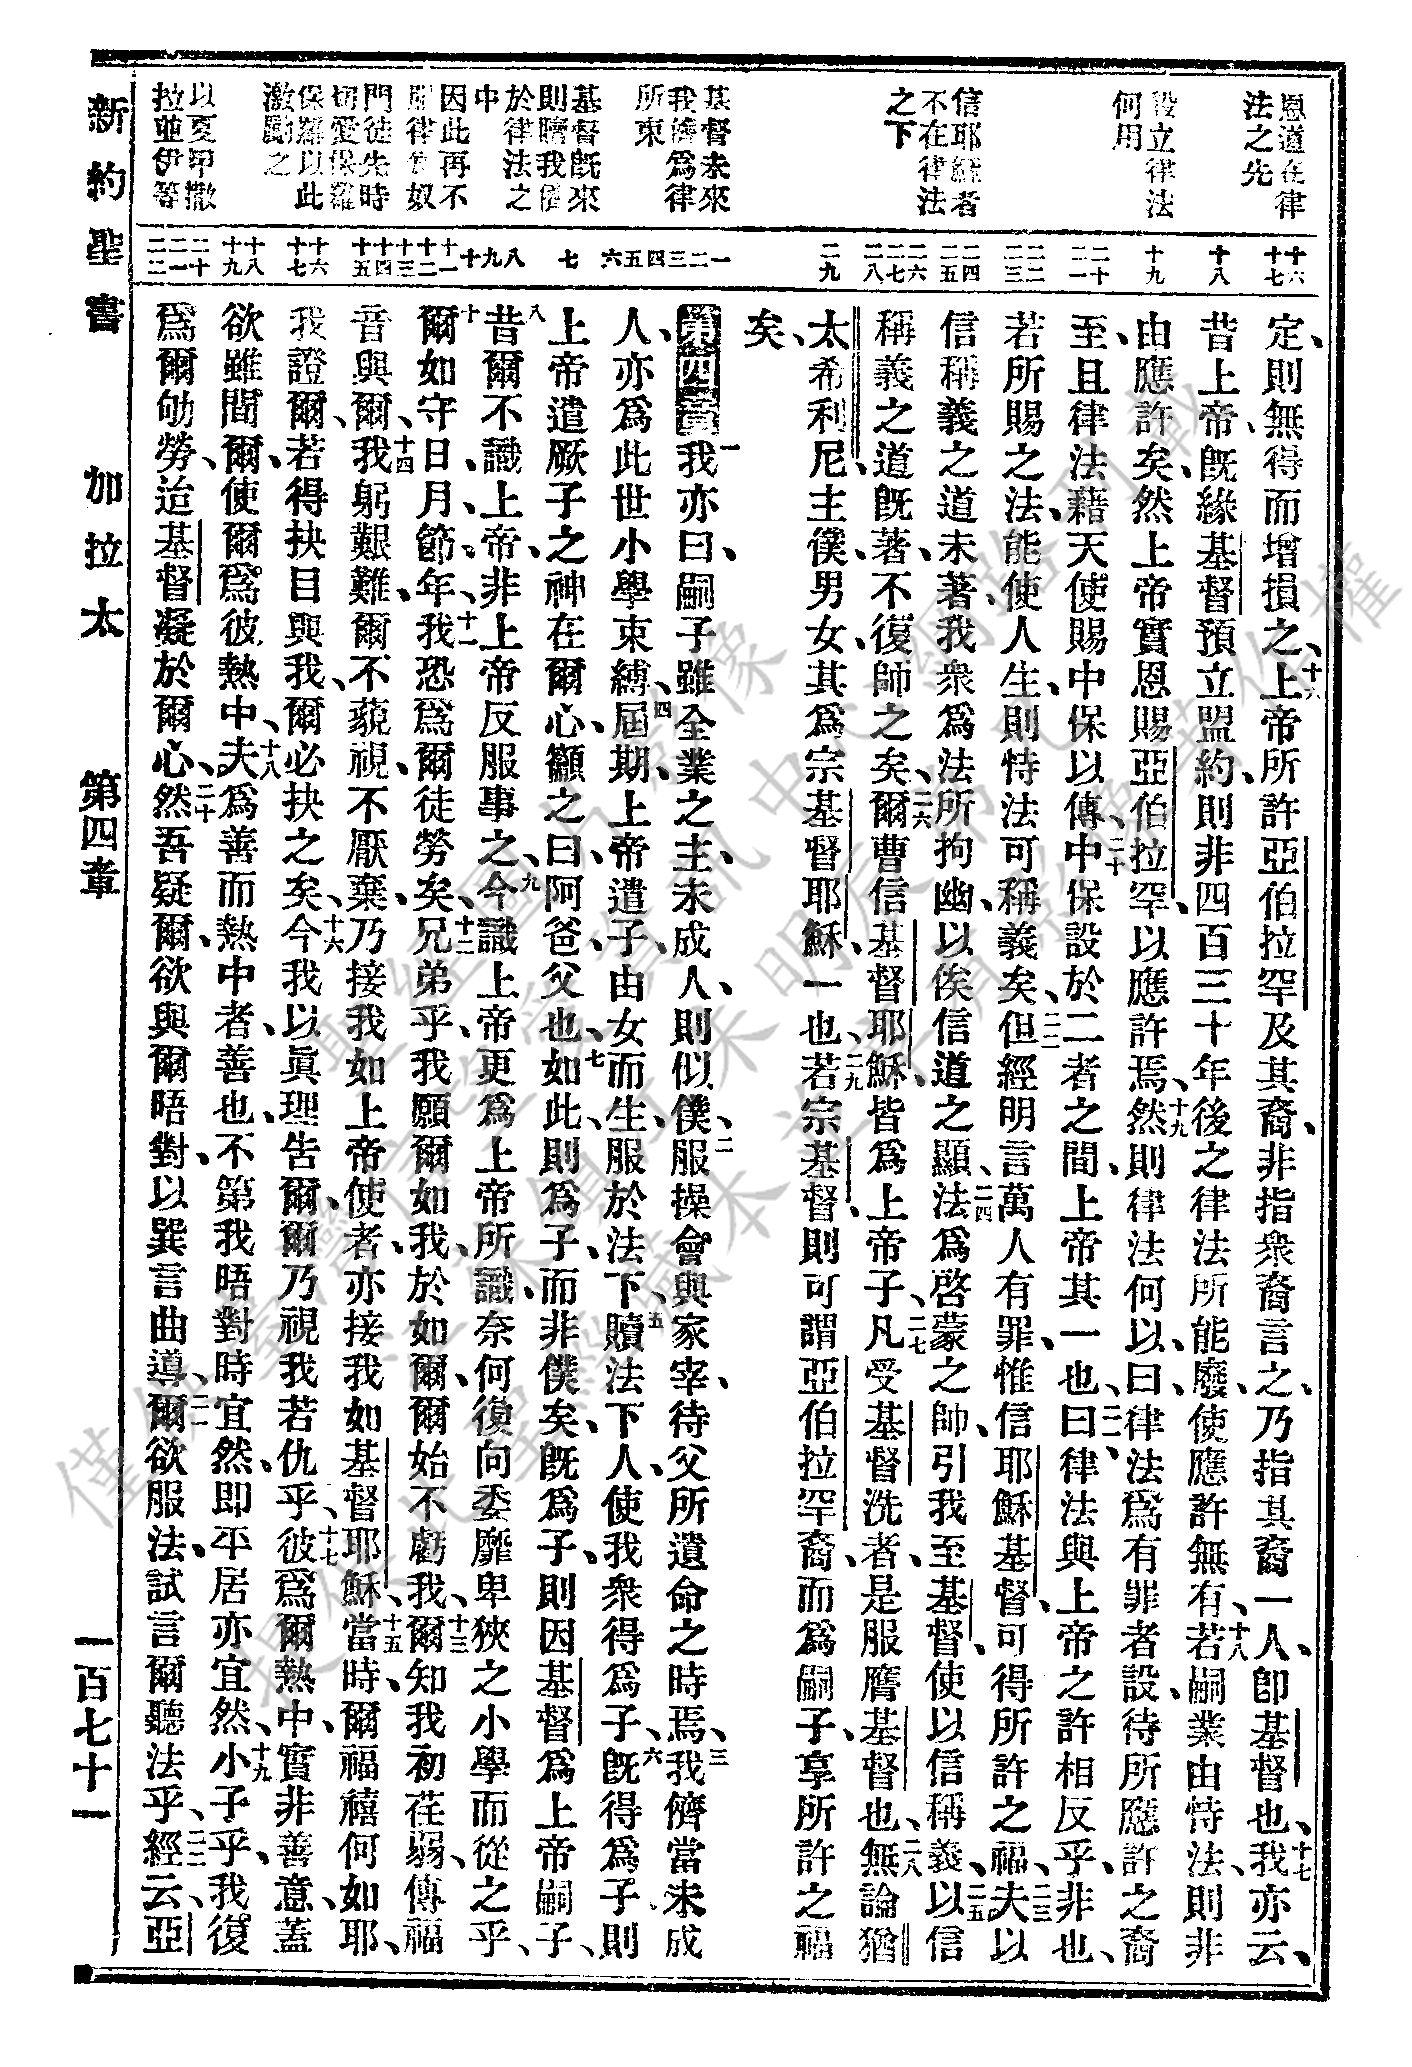 恩道在律
法之先
設立律法
何用
信耶穌者
不在律法
之下
基督未來
我儕爲律
所束
基督旣來
則贖我儕
於律法之
中
因此再不
服律爲奴
門徒先時
切愛保羅
保羅以此
激勵之
以夏甲撒
拉並伊等
十六
十七
十八
十九
二十
二一
二二
二三
二四
二五
二六
二七
二八
二九
一
二
三
四
五
六
七
八
九
十
十一
十二
十三
十四
十五
十六
十七
十八
十九
二十
二一
二二
定、則無得而增損之、十六上帝所許亞伯拉罕及其裔、非指衆裔言之、乃指其裔一人、卽基督也、十七我亦云、
昔上帝、旣緣基督預立盟約、則非四百三十年後之律法所能廢、使應許無有、十八若嗣業由恃法、則非
由應許矣、然上帝實恩賜亞伯拉罕、以應許焉、十九然則律法何以、曰、律法爲有罪者設、待所應許之裔
至、且律法藉天使賜中保以傳、二十中保設於二者之間、上帝其一也、二一曰、律法與上帝之許相反乎、非也、
若所賜之法、能使人生、則恃法可稱義矣、二二但經明言萬人有罪、惟信耶穌基督、可得所許之福、二三夫以
信稱義之道未著、我衆爲法所拘幽、以俟信道之顯、二四法爲啓蒙之師、引我至基督、使以信稱義、二五以信
稱義之道旣著、不復師之矣、二六爾曹信基督耶穌、皆爲上帝子、二七凡受基督洗者、是服膺基督也、二八無論猶
太希利尼、主僕、男女、其爲宗基督耶穌、一也、二九若宗基督、則可謂亞伯拉罕裔、而爲嗣子、享所許之福
矣、
第四章一我亦曰、嗣子雖全業之主、未成人、則似僕、二服操會與家宰、待父所遺命之時焉、三我儕當未成
人、亦爲此世小學束縛、四屆期、上帝遣子、由女而生、服於法下、五贖法下人、使我衆得爲子、六旣得爲子、則
上帝遣厥子之神在爾心、籲之曰、阿爸、父也、七如此、則爲子、而非僕矣、旣爲子、則因基督爲上帝嗣子、
八昔爾不識上帝、非上帝反服事之、九今識上帝、更爲上帝所識、奈何復向委靡卑狹之小學而從之乎、
十爾如守日、月、節、年、十一我恐爲爾徒勞矣、十二兄弟乎、我願爾如我、於如爾、爾始不虧我、十三爾知我初荏弱、傳福
音與爾、十四我躬艱難、爾不藐視、不厭棄、乃接我如上帝使者、亦接我如基督耶穌、十五當時、爾福禧何如耶、
我證爾、若得抉目與我、爾必抉之矣、十六今我以眞理告爾、爾乃視我若仇乎、十七彼爲爾熱中、實非善意、蓋
欲離間爾、使爾爲彼熱中、十八夫爲善而熱中者、善也、不第我晤對時宜然、卽平居亦宜然、十九小子乎、我復
爲爾劬勞、迨基督凝於爾心、二十然吾疑爾、欲與爾晤對、以巽言曲導、二一爾欲服法、試言爾聽法乎、二二經云、亞
新約聖書 加拉太 第四章 一百七十一
僅供